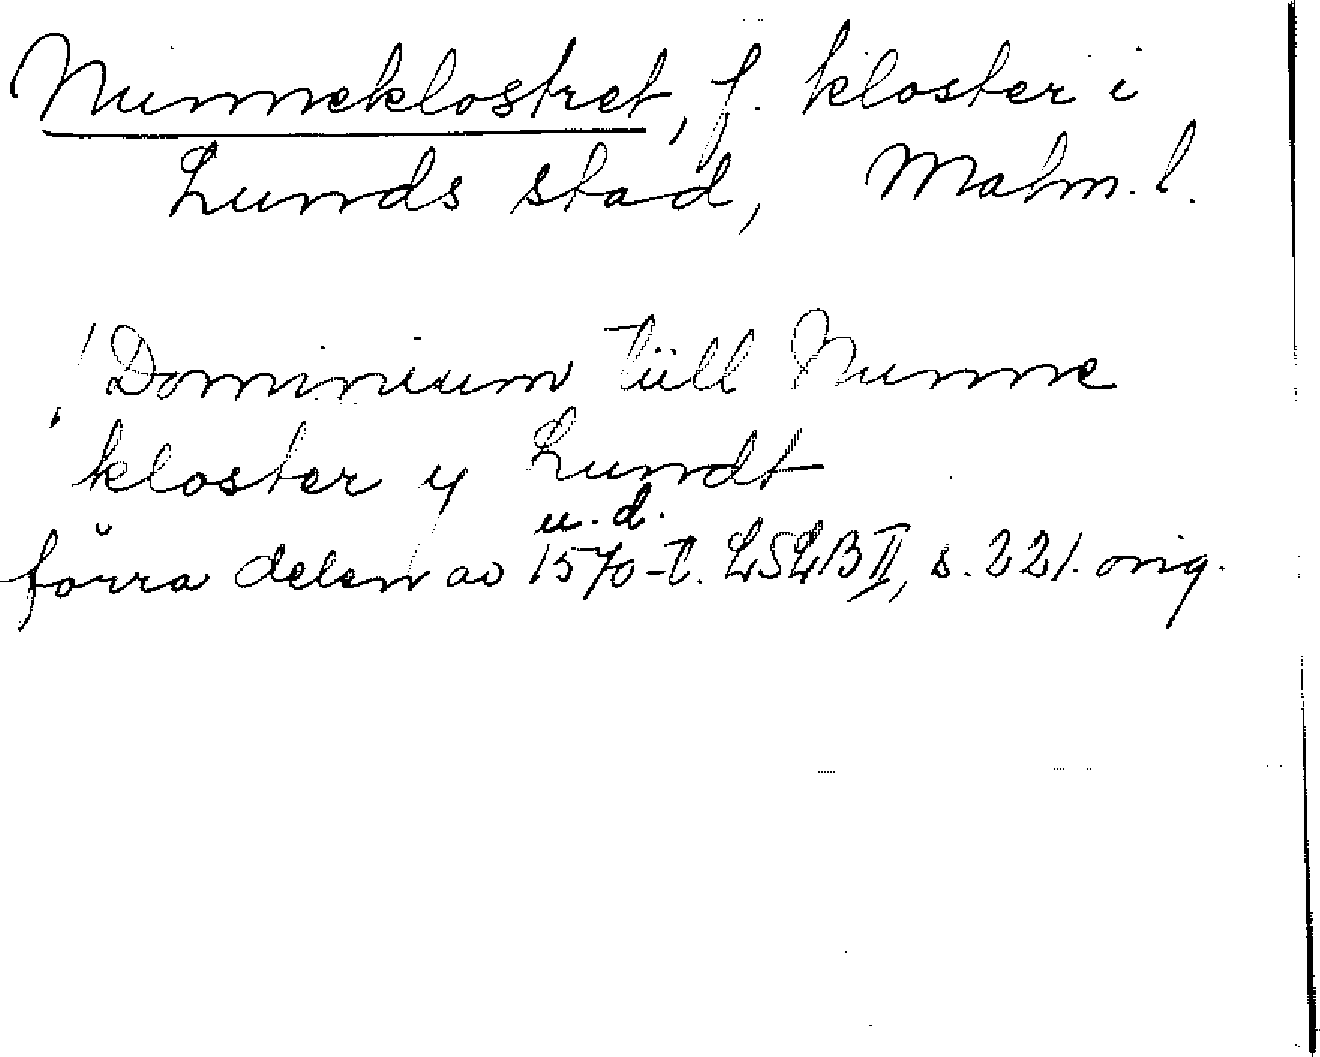 Nunneklostret, f. kloster i
Lunds stad, Malm. l.
! Dominium tüll Nunne
kloster y Lundt
u. d.
förra delen av 1570-t. LSLB II, s. 221. orig.